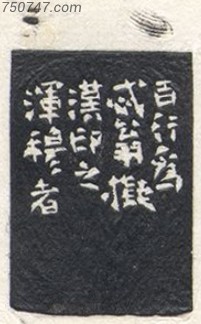 750747.com
百行為
翁擬
漢印之
渾穆者